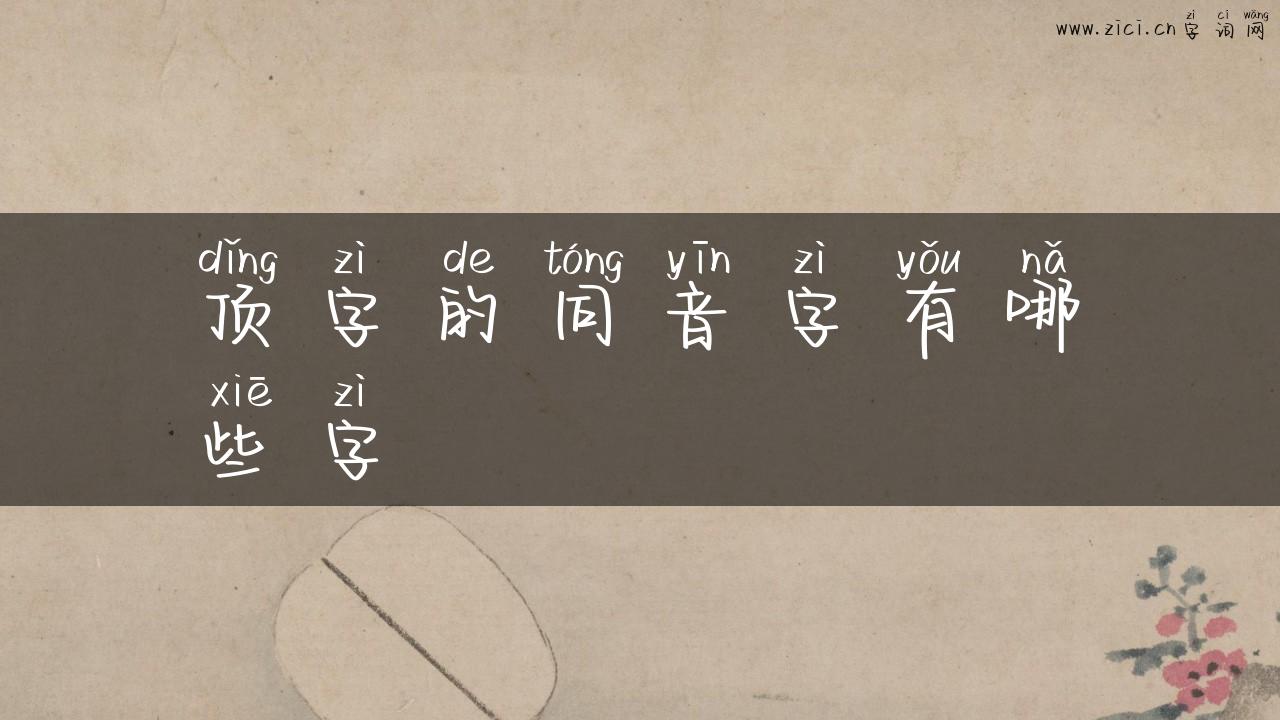 zì cí wǎng
www.zici.cn 字 词 网
dǐng zì de tóng yīn zì yǒu nǎ
顶 字 的 同 音 字 有 哪
xiē zì
些 字